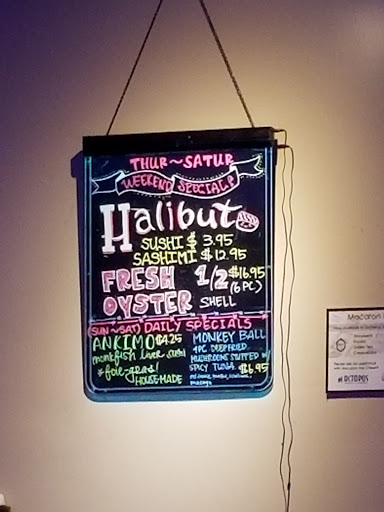 THUR~SATUR
WEEKEND SPECIALS
Halibut
SUSHI $ 3.95
SASHIMI $12.95
FRESH 1/2 $16.95
(6 PC)
OYSTER SHELL
(SUN~SAT) DAILY SPECIALS
ANKIMO $4.25
monkfish liver
foie-gras!
HOUSE-MADE
MONKEY BALL
4PC DEEPFRIED
MUSHROOMS STUFFED W/
SPICY TUNA $6.95
Macaron
OCTOPUS